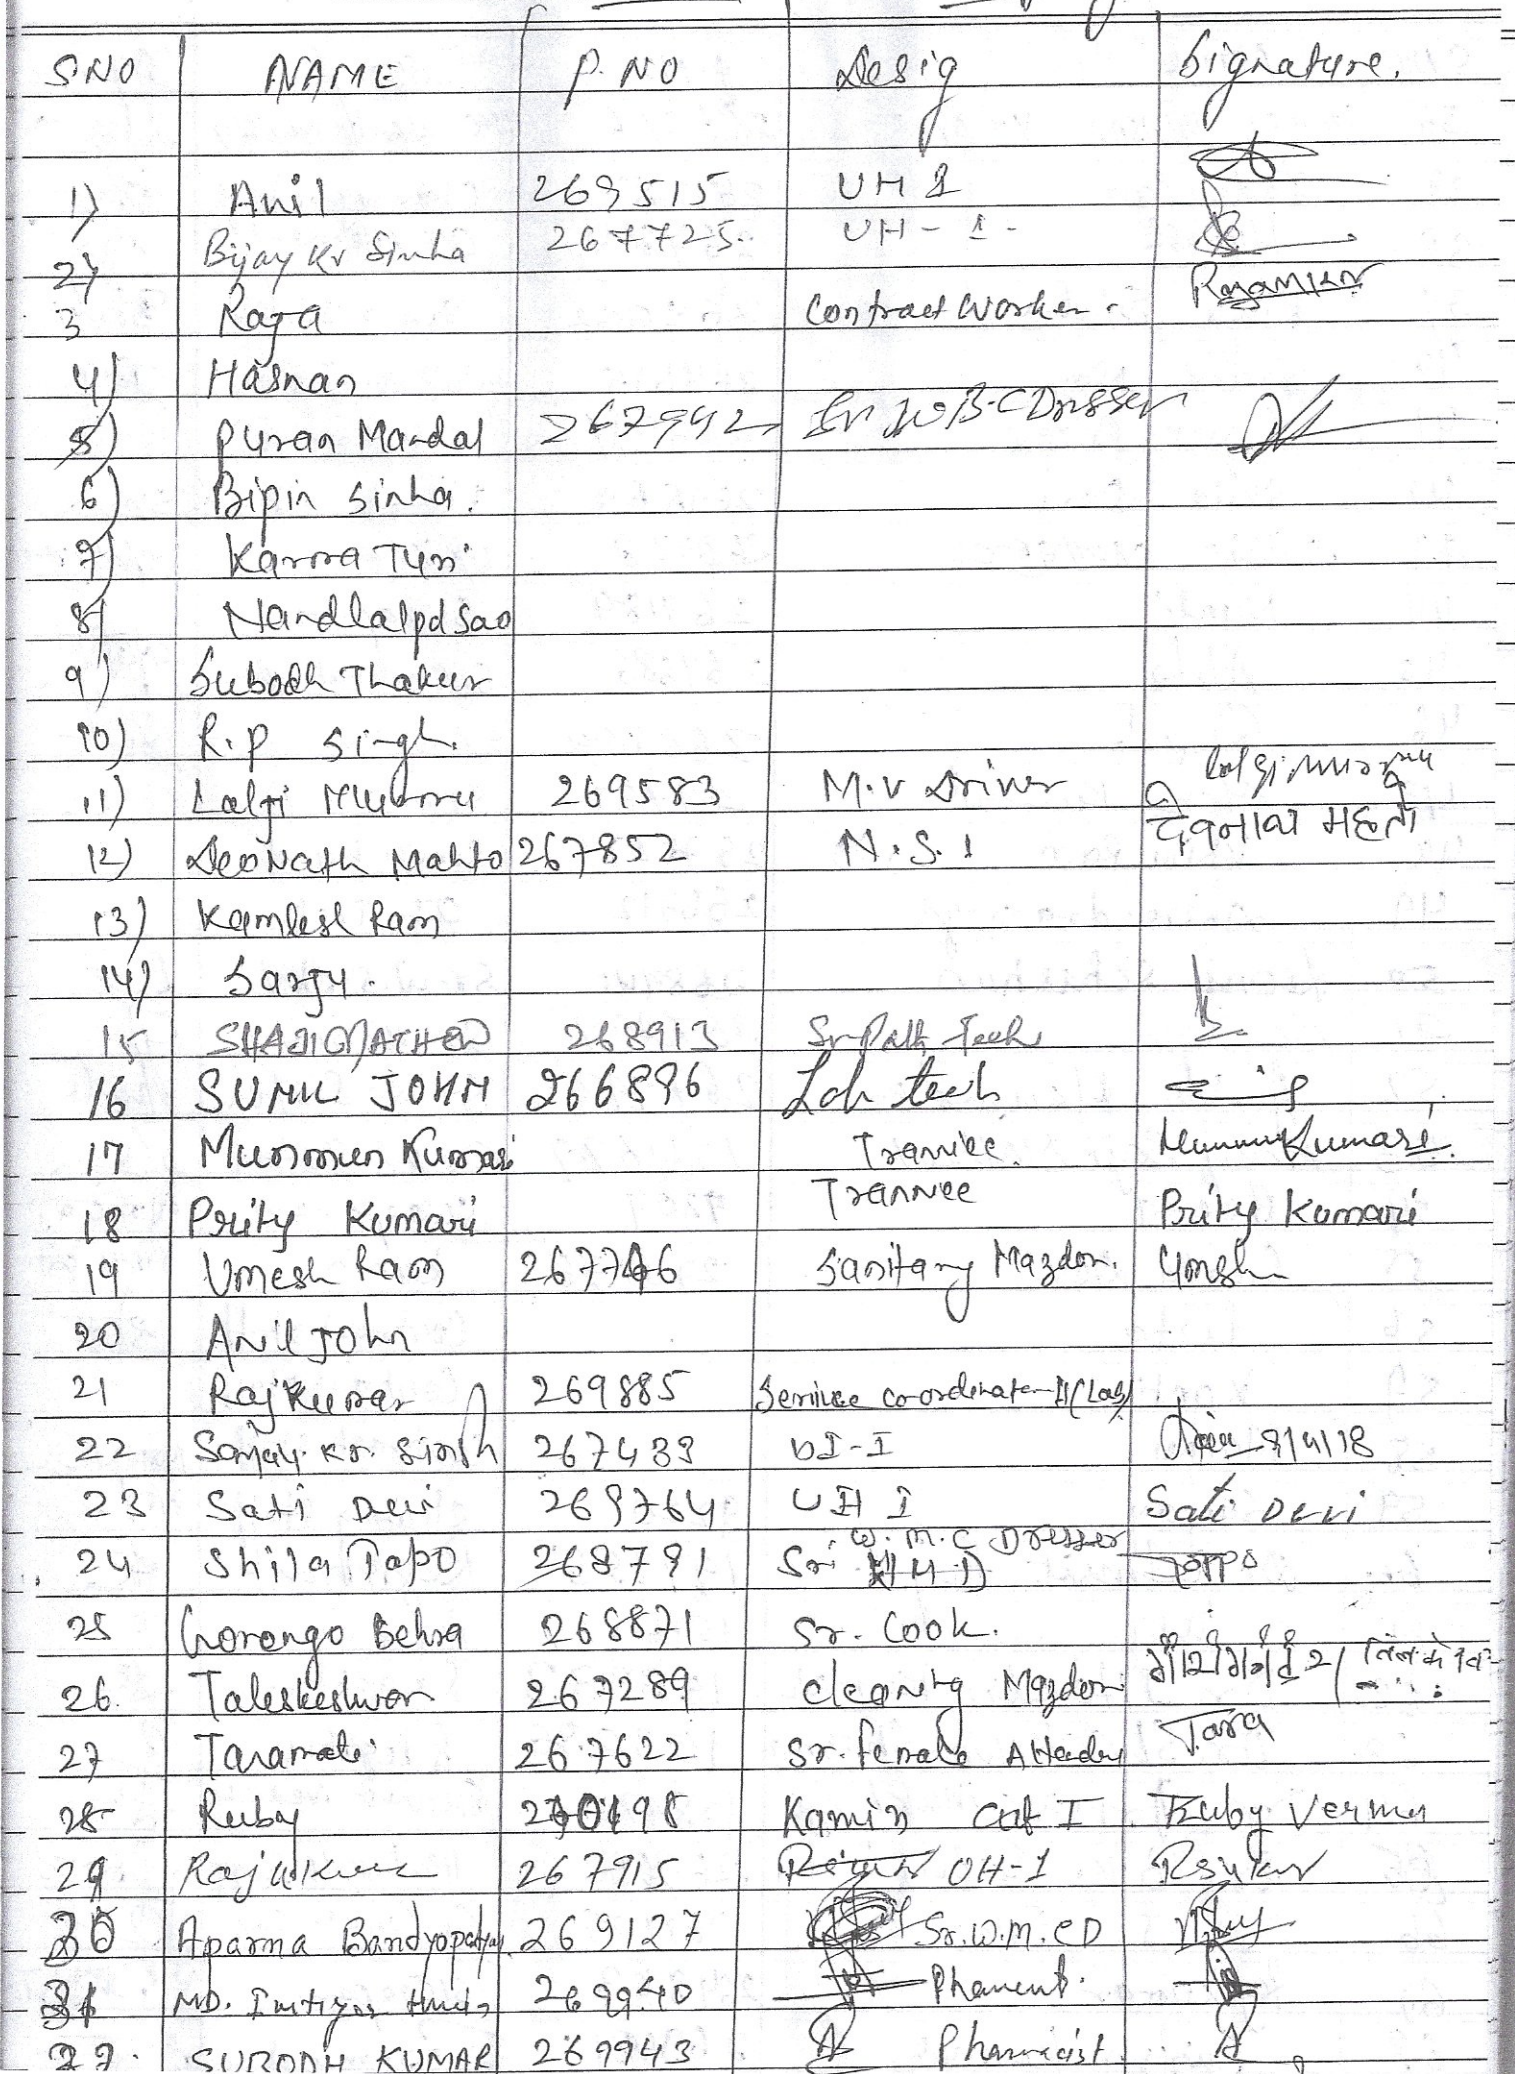 SNO NAME P. NO Desig Signature.
1) Anil 269515 UH 1
2) Bijay Kr Sinha 267725. UH - 1 -
3 Raja Contract Worker.
4) Hasnan
5) Puran Mandal 267942 Sr W.B.C Dresser
6) Bipin Sinha.
7) Karma Turi
8) Nandlal pd Sao
9) Subodh Thakur
10) R.P Singh.
11) Lalji Murmu 269583 M.V Driver
12) DeoNath Mahto 267852 N.S.1 देवनाथ महतो
13) Kamlesh Ram
14) Sarju.
15 SHAJI MATHEW 268913 Sr Path Tech
16 SUNIL JOHN 266896 Lab tech
17 Munmun Kumari Tranniee. Munmun Kumari.
18 Prity Kumari Trannee Prity Kumari
19 Umesh Ram 267746 Sanitary Mazdoor. Umesh
20 Anil John
21 Rajkumar 269885 Service co-ordinator-II (Lab)
22 Sanjay Kr. Singh 267439 UI-I 9/4/18
23 Sati Devi 269764 UH I Sati Devi
24 Shila Topo 268791 Sr W.M.C Dresser Topo
25 Gorongo Behra 268871 Sr. Cook.
26. Taleskeshwar 267289 Cleaning Mazdoor
27 Taramati 267622 Sr. female Attender Tara
28 Ruby 270698 Kamin Cat I Ruby Verma
29. Raju Kumar 267915 OH-1
30 Aparna Bandyopadhyay 269127 Sr. W.M.CD
31 MD. Imtiyaz 269940
SUBODH KUMAR 269943 Pharmacist